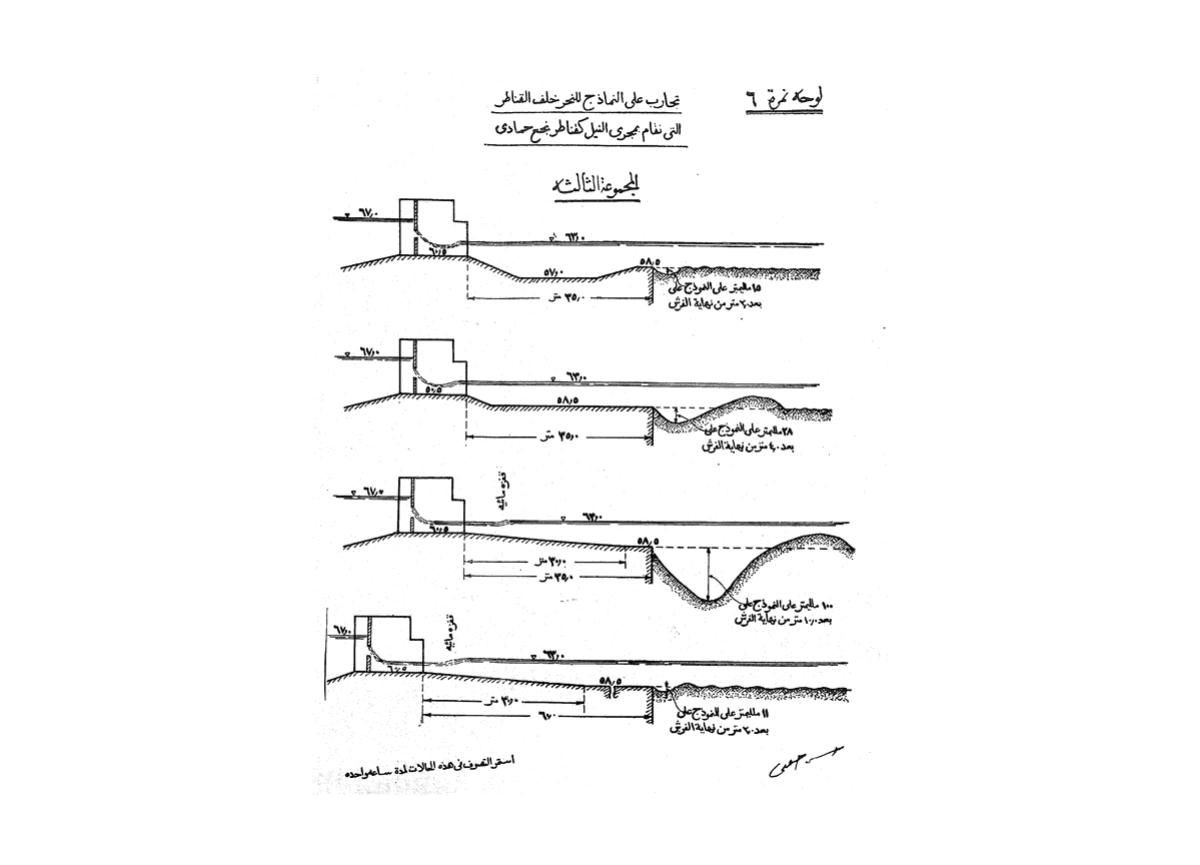 لوحه نمرة ٦
تجارب على النماذج للنحر خلف القناطر
التى تقام بمجرى النيل كقناطر نجع حمادى
المجموعة الثالثه
٦٧٫٠
٦٣٫٠
٦٠٫٥
٥٨٫٥
٥٧٫٠
١٥ ملليمتر على النموذج على
بعد ٢٫٠ متر من نهاية الفرش
٣٥٫٠ متر
٦٧٫٠
٦٣٫٠
٥٠٫٥
٥٨٫٥
٢٨ ملليمتر على النموذج على
بعد ٤٫٠ متر من نهاية الفرش
٣٥٫٠ متر
قفزه مائيه
٦٧٫٠
٦٣٫٠
٦٠٫٥
٥٨٫٥
٣٠٫٠ متر
٣٥٫٠ متر
١٠٠ ملليمتر على النموذج على
بعد ١٠٫٠ متر من نهاية الفرش
قفزه مائيه
٦٧٫٠
٦٣٫٠
٦٠٫٥
٥٨٫٥
٣٠٫٠ متر
٦٠٫٠
١١ ملليمتر على النموذج على
بعد ٢٫٠ متر من نهاية الفرش
استمر التصرف فى هذه الحالات لمدة ساعه واحده